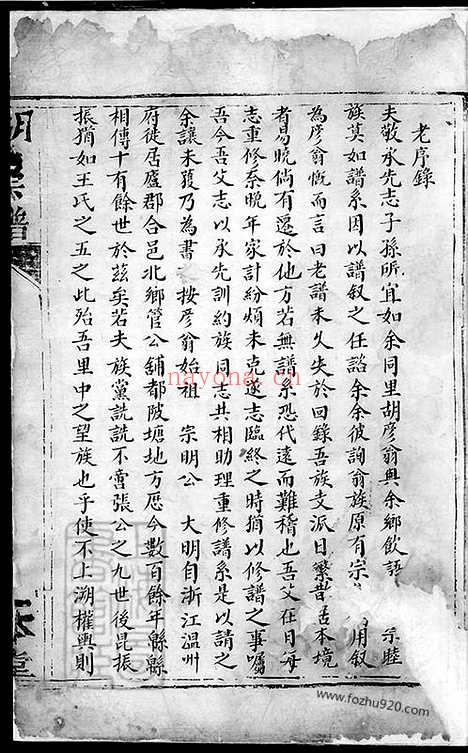 老序錄
夫敬承先志子孫所宜如余同里胡彥翁與余鄉飲語 示睦
族莫如譜系因以譜叙之任諮余余彼詢翁族原有宗 用叙
為彥翁慨而言曰老譜未久失於回錄吾族支派日繁昔居本境
者易曉倘有遷於他方若無譜系恐代遠而難稽也吾父在日每
志重修奈晚年家計紛煩未克遂志臨終之時猶以修譜之事囑
吾今吾父志以承先訓約族同志共相助理重修譜系是以請之
余讓未獲乃為書之按彥翁始祖 宗明公 大明自浙江溫州
府徙居廬郡合邑北鄉管公舖都陂塘地方歷今數百餘年緜緜
相傳十有餘世於茲矣若夫族黨詵詵不啻張公之九世後昆振
振猶如王氏之五之此殆吾里中之望族也乎使不上溯權輿則
明 宗譜
堂
nayona.cn
www.fozhu920.com